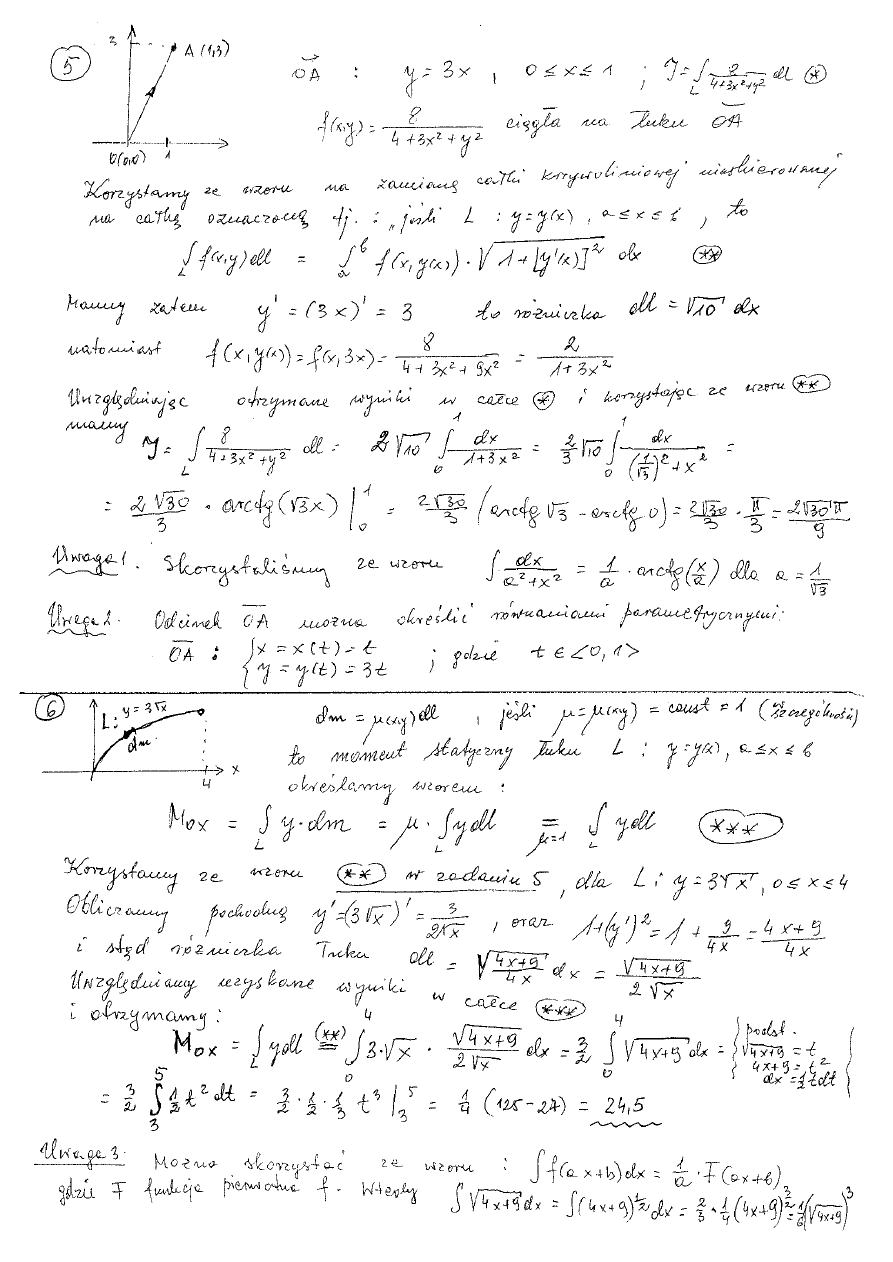 5
3
A (1,3)
0(0,0) 1
OA : y = 3x , 0 ≤ x ≤ 1 ; J = ∫_L 8/(4+3x²+y²) dl (*)
f(x,y) = 8/(4+3x²+y²) ciągła na łuku OA
Korzystamy ze wzoru na zamianę całki krzywoliniowej nieskierowanej
na całkę oznaczoną tj. : „jeśli L : y = y(x) , a ≤ x ≤ b , to
∫_L f(x,y) dl = ∫_a^b f(x,y(x)) · √(1+[y'(x)]²) dx (**)
Mamy zatem y' = (3x)' = 3 to różniczka dl = √10 dx
natomiast f(x,y(x)) = f(x,3x) = 8/(4+3x²+9x²) = 2/(1+3x²)
Uwzględniając otrzymane wyniki w całce (*) i korzystając ze wzoru (**)
mamy
J = ∫_L 8/(4+3x²+y²) dl = 2√10 ∫_0^1 dx/(1+3x²) = 2/3 √10 ∫_0^1 dx/((1/√3)²+x²) =
= 2√30/3 · arctg(√3x) |_0^1 = 2√30/3 (arctg √3 - arctg 0) = 2√30/3 · π/3 = 2√30π/9
Uwaga 1. Skorzystaliśmy ze wzoru ∫ dx/(a²+x²) = 1/a · arctg(x/a) dla a = 1/√3
Uwaga 2. Odcinek OA można określić równaniami parametrycznymi:
OA : { x = x(t) = t
y = y(t) = 3t ; gdzie t ∈ <0,1>
6
L: y = 3√x
dm
4 x
dm = μ(x,y) dl , jeśli μ = μ(x,y) = const = 1 (w szczególności)
to moment statyczny łuku L : y = y(x), a ≤ x ≤ b
określamy wzorem :
M_OX = ∫_L y·dm = μ · ∫_L y dl =_(μ=1) ∫_L y dl (***)
Korzystamy ze wzoru (**) w zadaniu 5 , dla L : y = 3√x , 0 ≤ x ≤ 4
Obliczamy pochodną y' = (3√x)' = 3/(2√x) , oraz 1+(y')² = 1 + 9/4x = (4x+9)/4x
i stąd różniczka łuku dl = √((4x+9)/4x) dx = √(4x+9)/(2√x)
Uwzględniamy uzyskane wyniki w całce (***)
i otrzymamy :
M_OX = ∫_L y dl =^(**) ∫_0^4 3·√x · √(4x+9)/(2√x) dx = 3/2 ∫_0^4 √(4x+9) dx = { podst. √(4x+9) = t 4x+9 = t² dx = 1/2 t dt }
= 3/2 ∫_3^5 1/2 t² dt = 3/2 · 1/2 · 1/3 t³ |_3^5 = 1/4 (125-27) = 24,5
Uwaga 3. Można skorzystać ze wzoru : ∫f(ax+b)dx = 1/a · F(ax+b)
gdzie F funkcja pierwotna f. Wtedy ∫√(4x+9) dx = ∫(4x+9)^(1/2) dx = 2/3 · 1/4 (4x+9)^(3/2) = 1/6 (√(4x+9))³